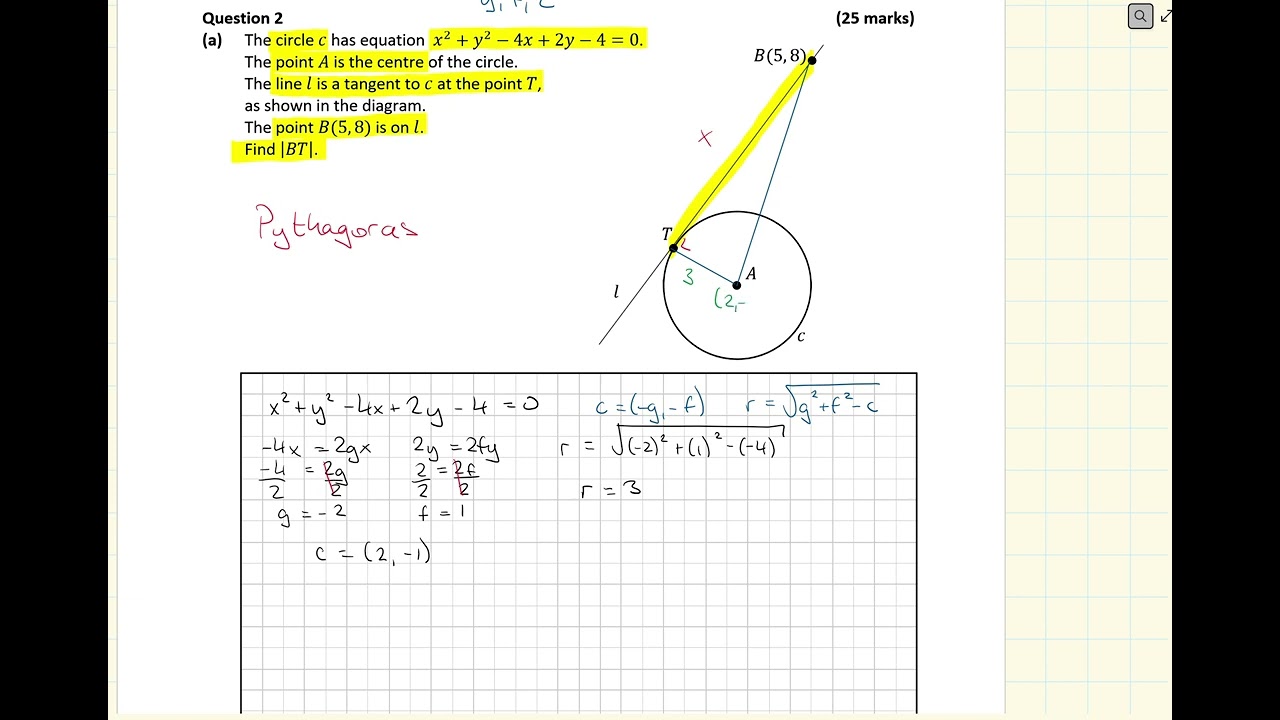 g, f, c
Question 2 (25 marks)
(a) The circle c has equation x² + y² − 4x + 2y − 4 = 0.
The point A is the centre of the circle.
The line l is a tangent to c at the point T,
as shown in the diagram.
The point B(5, 8) is on l.
Find |BT|.
Pythagoras
B(5, 8)
x
T
3
A
(2,-
l
c
x² + y² - 4x + 2y - 4 = 0
c = (-g, -f) r = √g² + f² - c
-4x = 2gx 2y = 2fy
r = √(-2)² + (1)² - (-4)
-4/2 = 2g/2 2/2 = 2f/2
r = 3
g = -2 f = 1
c = (2, -1)